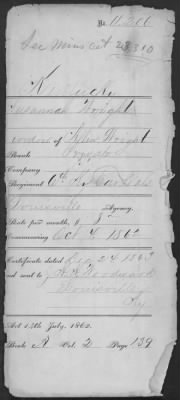 No. 11,266
See Mins Cert 28310
Kentucky
Susannah Wright
widow of John Wright
Rank Private
Company
Regiment 6th Ky Cav Vols
Louisville Agency.
Rate per month, $ 8
Commencing Oct 4 1862
Certificate dated Dec 24 1863
and sent to
Woodward
Louisville
Ky
Act 14th July, 1862.
Book A Vol. 2 Page 139